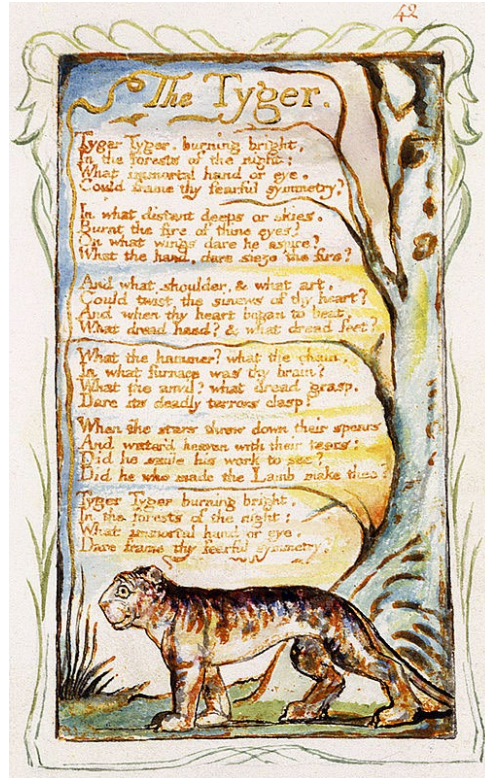 42
The Tyger.
Tyger Tyger. burning bright,
In the forests of the night;
What immortal hand or eye.
Could frame thy fearful symmetry?
In what distant deeps or skies.
Burnt the fire of thine eyes?
On what wings dare he aspire?
What the hand, dare sieze the fire?
And what shoulder, & what art,
Could twist the sinews of thy heart?
And when thy heart began to beat,
What dread hand? & what dread feet?
What the hammer? what the chain,
In what furnace was thy brain?
What the anvil? what dread grasp,
Dare its deadly terrors clasp!
When the stars threw down their spears
And water'd heaven with their tears:
Did he smile his work to see?
Did he who made the Lamb make thee?
Tyger Tyger burning bright,
In the forests of the night:
What immortal hand or eye,
Dare frame thy fearful symmetry?